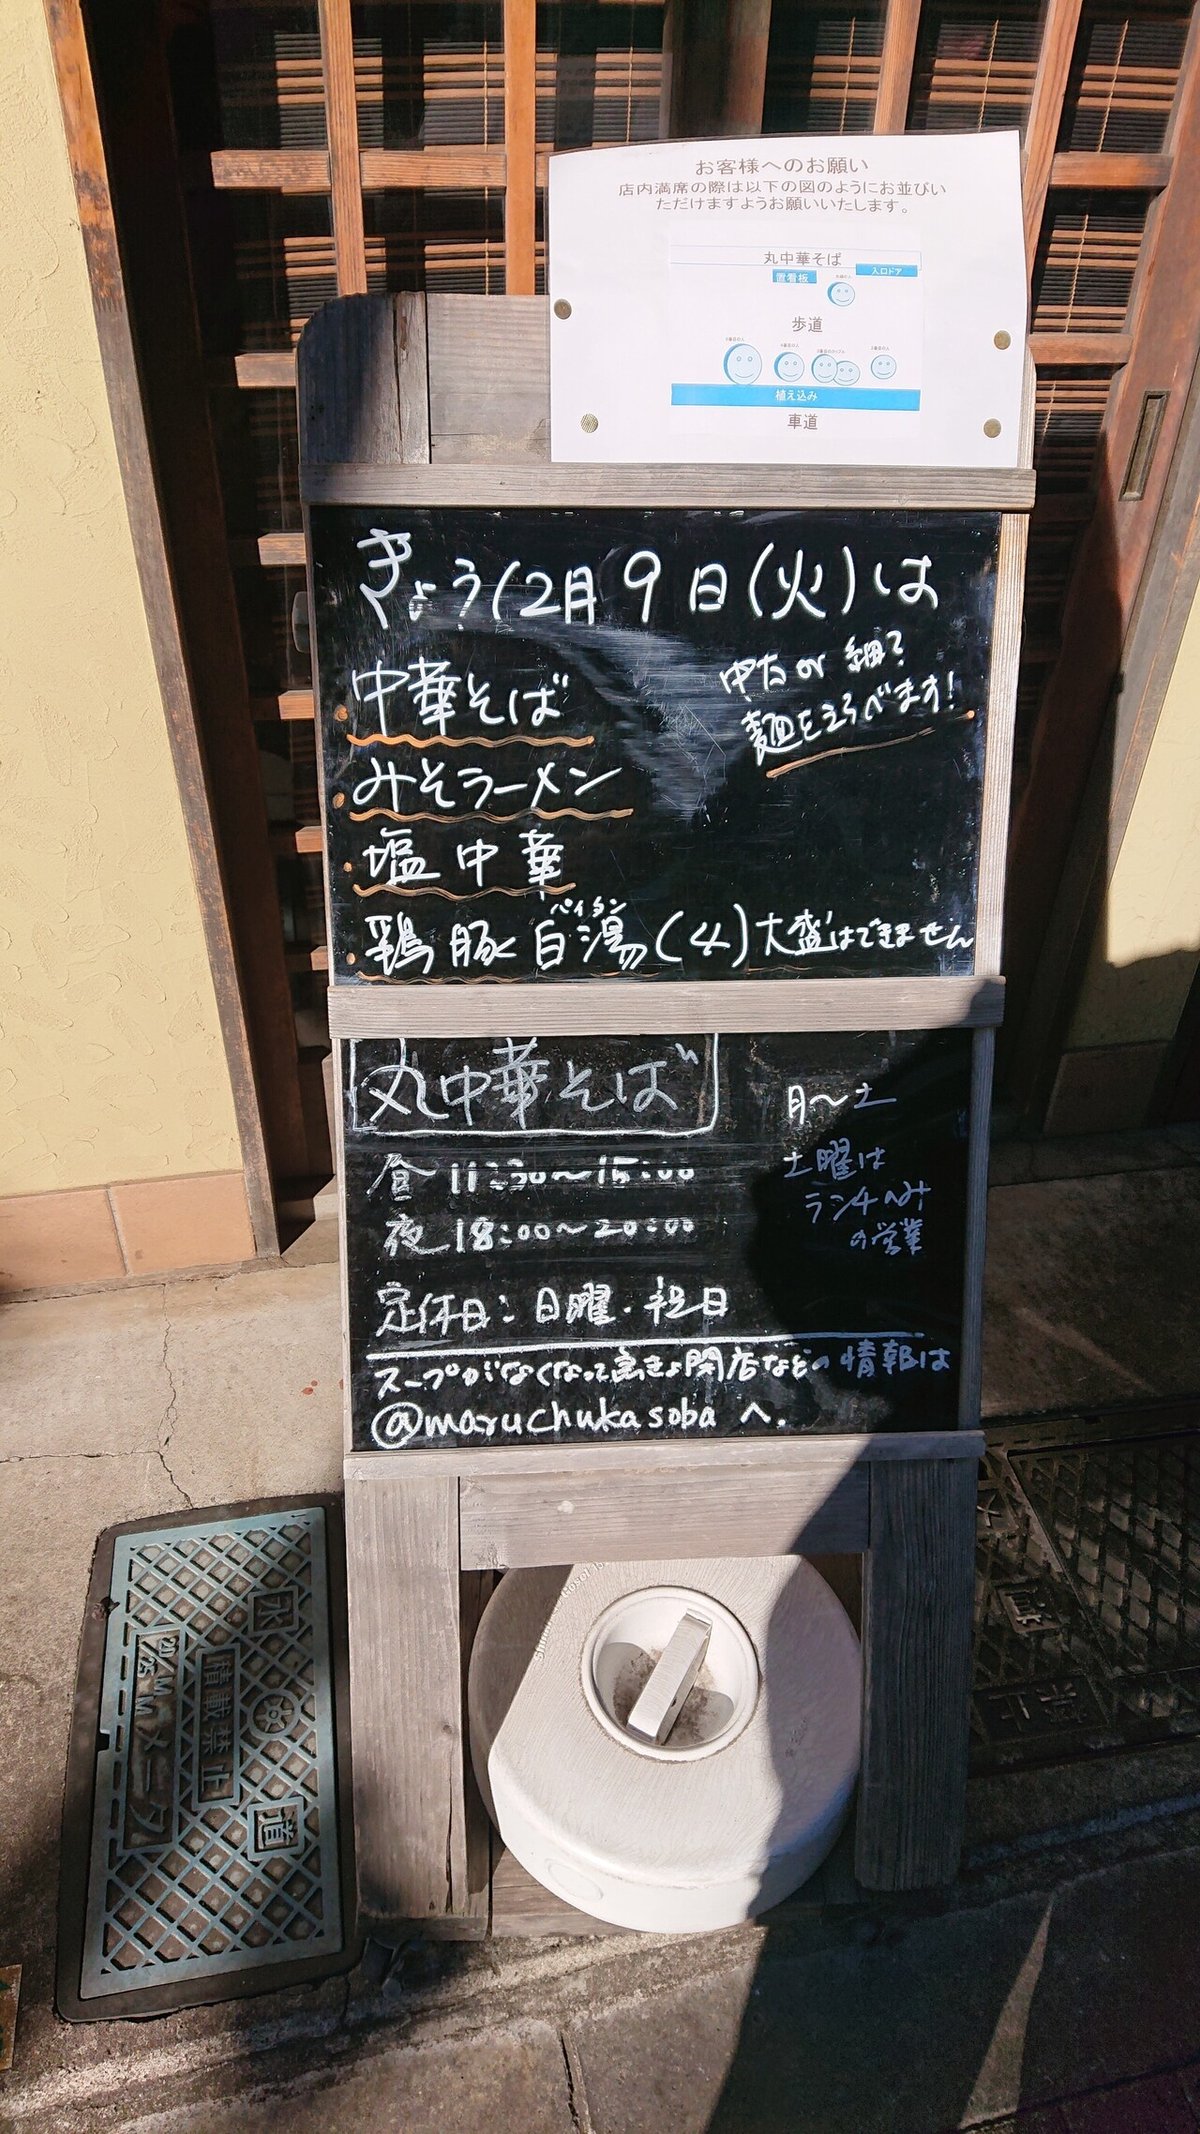 お客様へのお願い
店内満席の際は以下の図のようにお並びい
ただけますようお願いいたします。
丸中華そば
置看板
入口ドア
歩道
植え込み
車道
きょう12月9日(火)は
中華そば
中太or細?
麺をえらべます!
みそラーメン
塩中華
パイタン
鶏豚白湯(4)大盛はできません
丸中華そば
月〜土
昼 11:30〜15:00
土曜は
ランチのみ
の営業
夜 18:00〜20:00
定休日:日曜・祝日
スープがなくなって閉店などの情報は
@maruchukasoba へ.
水
道
積載禁止
20/25 M M
メータ